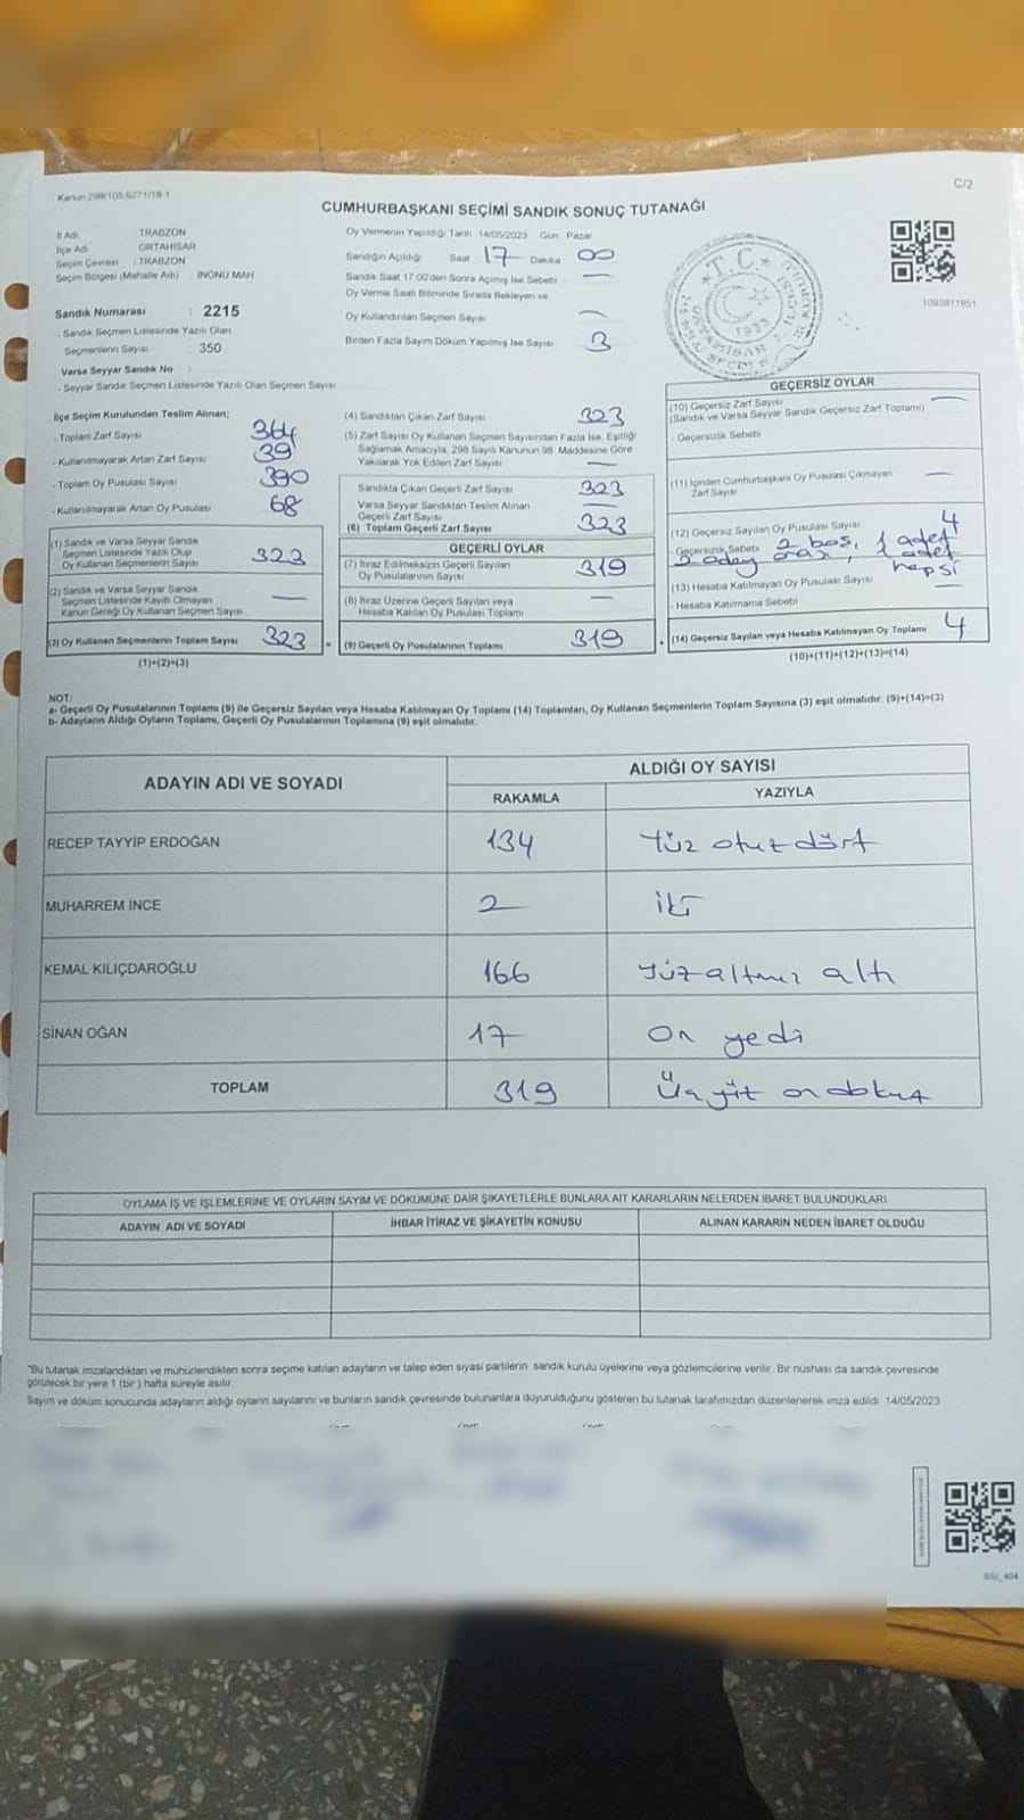 Kanun 298/105.6271/18-1
C/2
CUMHURBAŞKANI SEÇİMİ SANDIK SONUÇ TUTANAĞI
İl Adı TRABZON
İlçe Adı ORTAHİSAR
Seçim Çevresi : TRABZON
Seçim Bölgesi (Mahalle Adı) İNÖNÜ MAH
Sandık Numarası : 2215
- Sandık Seçmen Listesinde Yazılı Olan
Seçmenlerin Sayısı : 350
Varsa Seyyar Sandık No :
- Seyyar Sandık Seçmen Listesinde Yazılı Olan Seçmen Sayısı
Oy Vermenin Yapıldığı Tarih 14/05/2023 Gün: Pazar
Sandığın Açıldığı Saat 17 Dakika 00
Sandık Saat 17:00'den Sonra Açılmış İse Sebebi —
Oy Verme Saati Bitiminde Sırada Bekleyen ve
Oy Kullandırılan Seçmen Sayısı —
Birden Fazla Sayım Döküm Yapılmış İse Sayısı 3
T.C.
1923
ORTAHİSAR
1093811951
İlçe Seçim Kurulundan Teslim Alınan;
- Toplam Zarf Sayısı 364
- Kullanılmayarak Artan Zarf Sayısı 39
- Toplam Oy Pusulası Sayısı 390
- Kullanılmayarak Artan Oy Pusulası 68
(1) Sandık ve Varsa Seyyar Sandık
Seçmen Listesinde Yazılı Olup
Oy Kullanan Seçmenlerin Sayısı 323
(2) Sandık ve Varsa Seyyar Sandık
Seçmen Listesinde Kayıtlı Olmayan
Kanun Gereği Oy Kullanan Seçmen Sayısı —
(3) Oy Kullanan Seçmenlerin Toplam Sayısı 323
(1)+(2)=(3)
(4) Sandıktan Çıkan Zarf Sayısı 323
(5) Zarf Sayısı Oy Kullanan Seçmen Sayısından Fazla İse, Eşitliği
Sağlamak Amacıyla, 298 Sayılı Kanunun 98. Maddesine Göre
Yakılarak Yok Edilen Zarf Sayısı —
Sandıkta Çıkan Geçerli Zarf Sayısı 323
Varsa Seyyar Sandıktan Teslim Alınan
Geçerli Zarf Sayısı —
(6) Toplam Geçerli Zarf Sayısı 323
GEÇERLİ OYLAR
(7) İtiraz Edilmeksizin Geçerli Sayılan
Oy Pusulalarının Sayısı 319
(8) İtiraz Üzerine Geçerli Sayılan veya
Hesaba Katılan Oy Pusulası Toplamı —
(9) Geçerli Oy Pusulalarının Toplamı 319
GEÇERSİZ OYLAR
(10) Geçersiz Zarf Sayısı
(Sandık ve Varsa Seyyar Sandık Geçersiz Zarf Toplamı) —
- Geçersizlik Sebebi
(11) İçinden Cumhurbaşkanı Oy Pusulası Çıkmayan
Zarf Sayısı —
(12) Geçersiz Sayılan Oy Pusulası Sayısı 4
- Geçersizlik Sebebi 2 boş, 1 adet
3 aday arası, 1 adet
hepsi
(13) Hesaba Katılmayan Oy Pusulası Sayısı —
- Hesaba Katılmama Sebebi
(14) Geçersiz Sayılan veya Hesaba Katılmayan Oy Toplamı 4
(10)+(11)+(12)+(13)=(14)
NOT:
a- Geçerli Oy Pusulalarının Toplamı (9) ile Geçersiz Sayılan veya Hesaba Katılmayan Oy Toplamı (14) Toplamları, Oy Kullanan Seçmenlerin Toplam Sayısına (3) eşit olmalıdır. (9)+(14)=(3)
b- Adayların Aldığı Oyların Toplamı, Geçerli Oy Pusulalarının Toplamına (9) eşit olmalıdır.
ADAYIN ADI VE SOYADI
ALDIĞI OY SAYISI
RAKAMLA YAZIYLA
RECEP TAYYİP ERDOĞAN 134 Yüz otuz dört
MUHARREM İNCE 2 iki
KEMAL KILIÇDAROĞLU 166 yüz altmış altı
SİNAN OĞAN 17 On yedi
TOPLAM 319 Üç yüz on dokuz
OYLAMA İŞ VE İŞLEMLERİNE VE OYLARIN SAYIM VE DÖKÜMÜNE DAİR ŞİKAYETLERLE BUNLARA AİT KARARLARIN NELERDEN İBARET BULUNDUKLARI
ADAYIN ADI VE SOYADI İHBAR İTİRAZ VE ŞİKAYETİN KONUSU ALINAN KARARIN NEDEN İBARET OLDUĞU
"Bu tutanak imzalandıktan ve mühürlendikten sonra seçime katılan adayların ve talep eden siyasi partilerin sandık kurulu üyelerine veya gözlemcilerine verilir. Bir nüshası da sandık çevresinde
görülecek bir yere 1 (bir) hafta süreyle asılır.
Sayım ve döküm sonucunda adayların aldığı oyların sayılarını ve bunların sandık çevresinde bulunanlara duyurulduğunu gösteren bu tutanak tarafımızdan düzenlenerek imza edildi. 14/05/2023